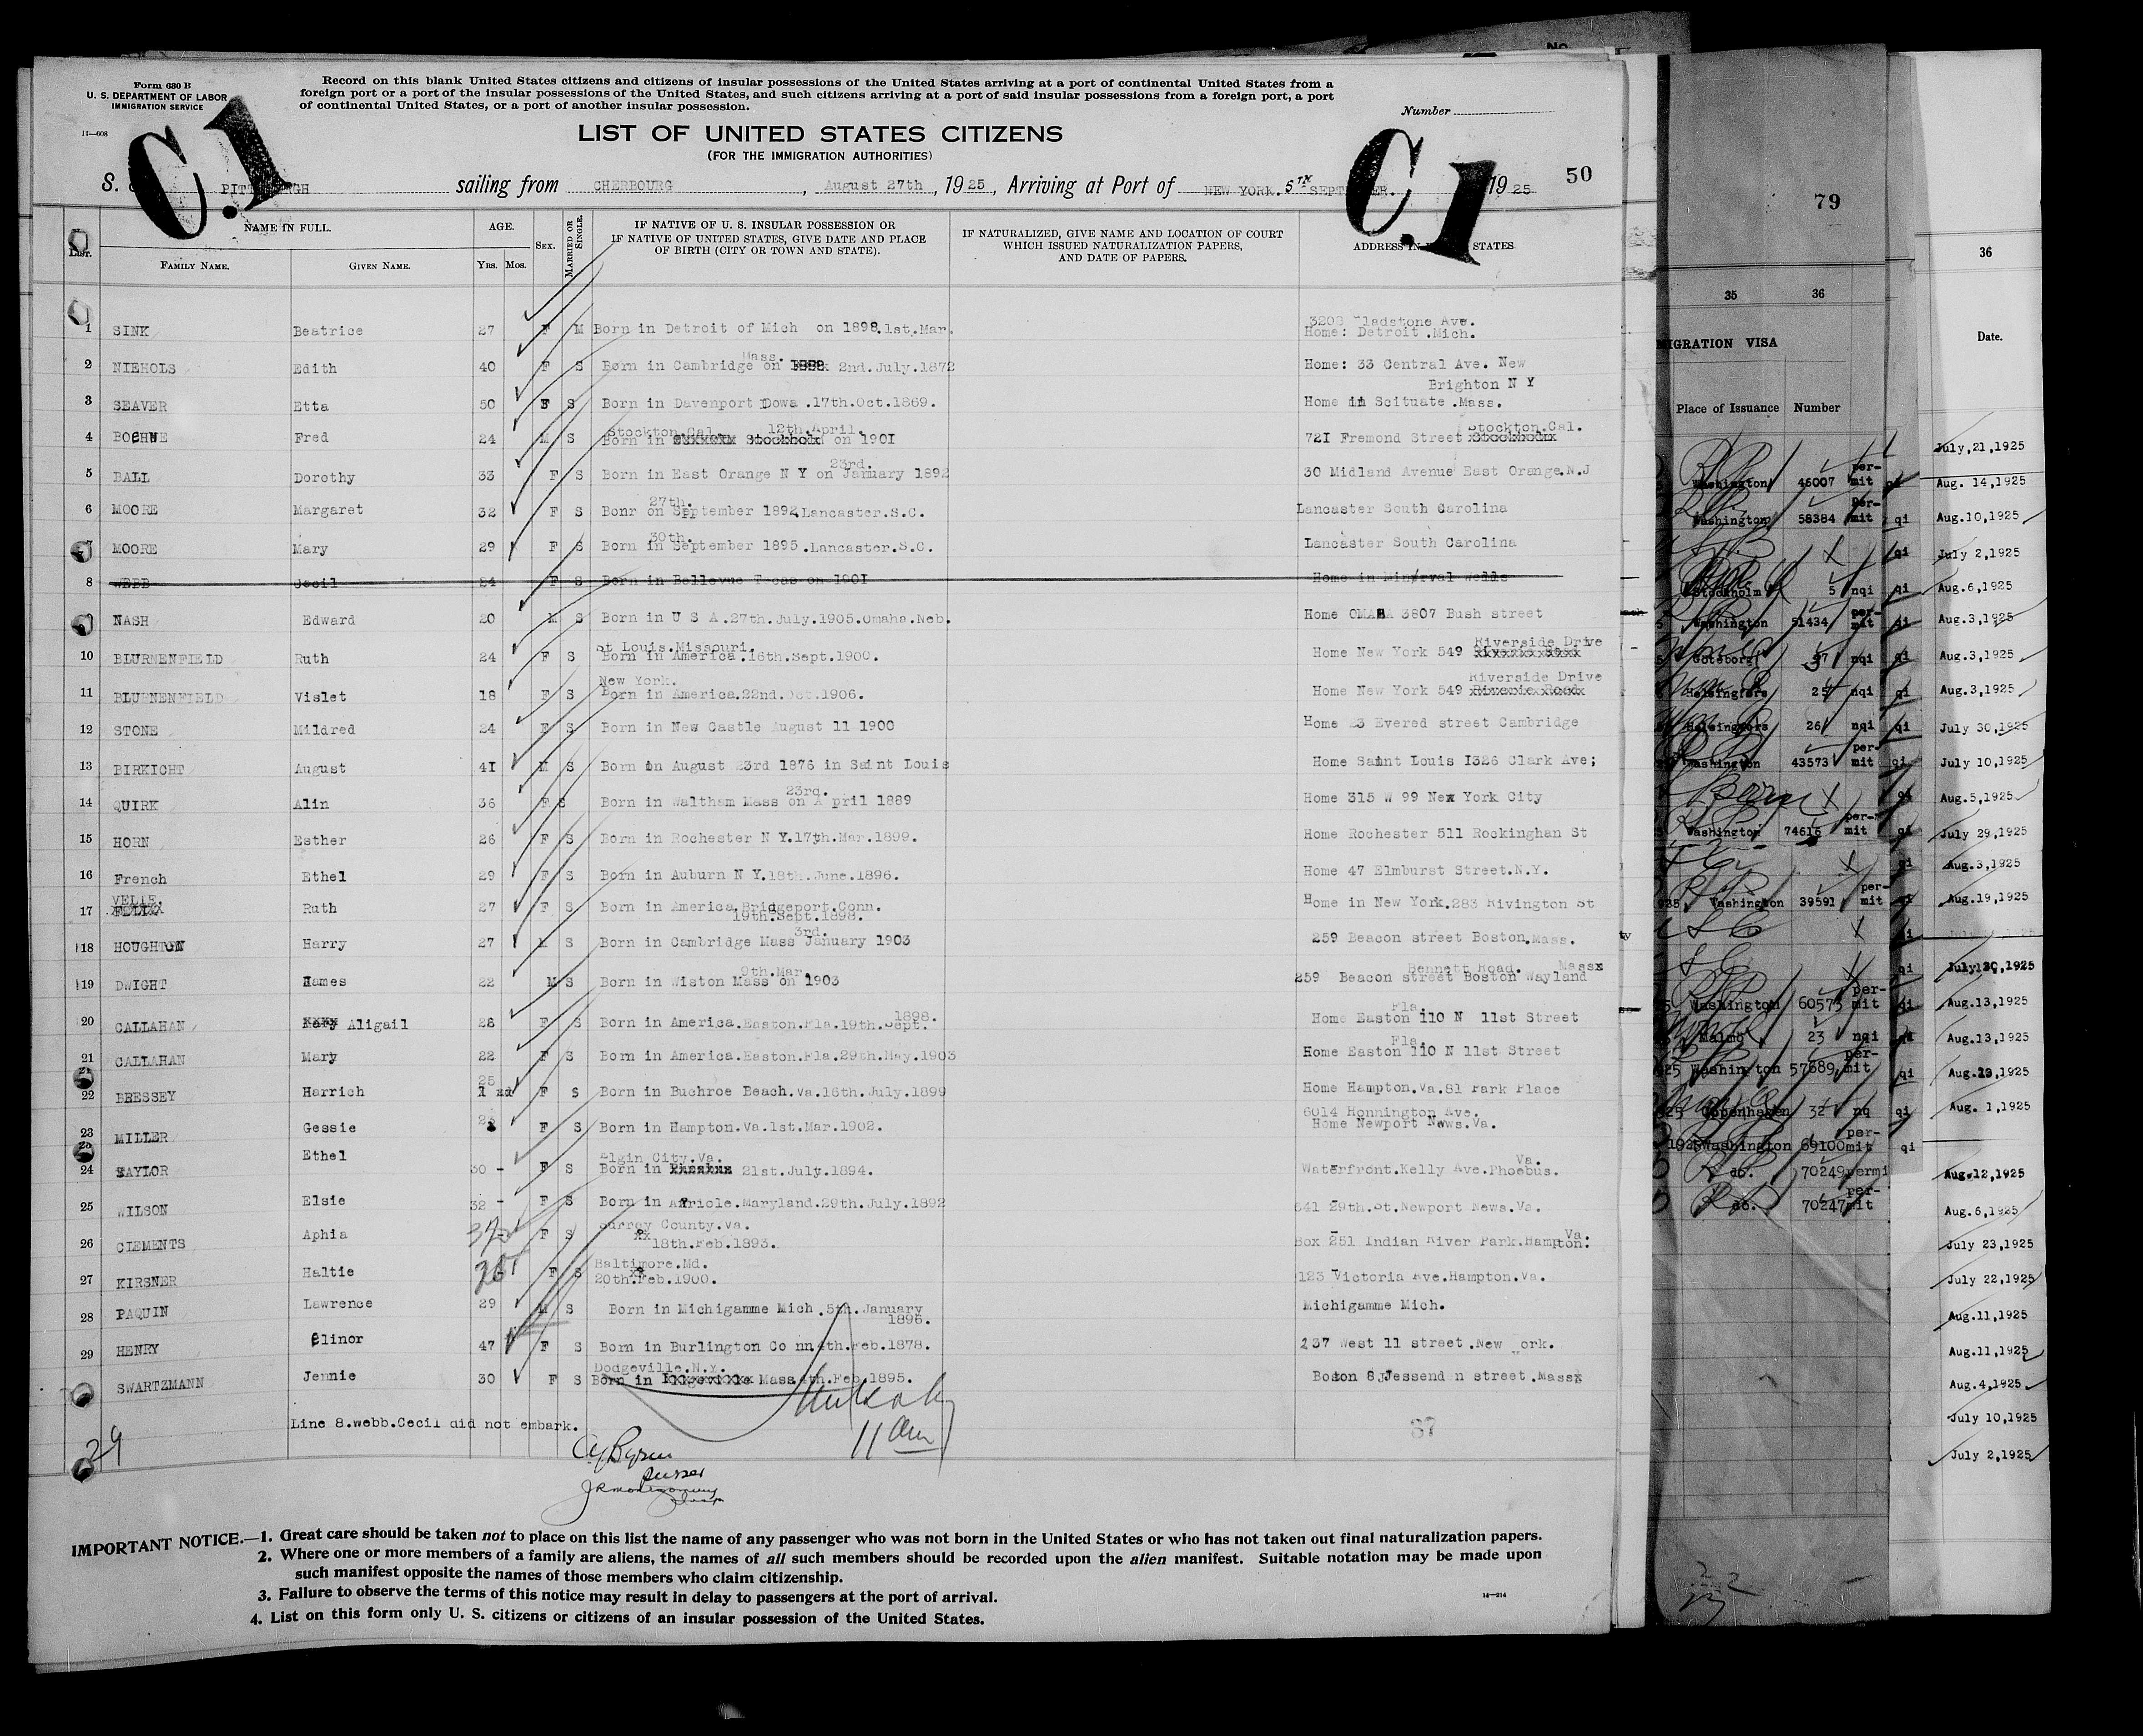 Form 630 B
U. S. DEPARTMENT OF LABOR
IMMIGRATION SERVICE
11—608
Record on this blank United States citizens and citizens of insular possessions of the United States arriving at a port of continental United States from a
foreign port or a port of the insular possessions of the United States, and such citizens arriving at a port of said insular possessions from a foreign port, a port
of continental United States, or a port of another insular possession.
Number
LIST OF UNITED STATES CITIZENS
(FOR THE IMMIGRATION AUTHORITIES)
C.1
C.1
50
S. PITTSBURGH sailing from CHERBOURG, August 27th, 1925, Arriving at Port of NEW YORK. 5TH SEPTEMBER. 1925
List.
NAME IN FULL.
FAMILY NAME.
GIVEN NAME.
AGE.
YRS. MOS.
SEX.
MARRIED OR SINGLE.
IF NATIVE OF U. S. INSULAR POSSESSION OR
IF NATIVE OF UNITED STATES, GIVE DATE AND PLACE
OF BIRTH (CITY OR TOWN AND STATE).
IF NATURALIZED, GIVE NAME AND LOCATION OF COURT
WHICH ISSUED NATURALIZATION PAPERS,
AND DATE OF PAPERS.
ADDRESS IN STATES
1 SINK Beatrice 27 F M Born in Detroit of Mich on 1898.1st.Mar. 3208 Gladstone Ave.
Home: Detroit .Mich.
2 NIEHOLS Edith 40 F S Born in Cambridge Mass. on 2nd.July.1872 Home: 33 Central Ave. New
Brighton N Y
3 SEAVER Etta 50 F S Born in Davenport Iowa .17th.Oct.1869. Home in Scituate .Mass.
4 BOEHNE Fred 24 M S Stockton.Cal. 12th.April.
Born in on 190I 72I Fremond Street Stockton.Cal.
5 BALL Dorothy 33 F S Born in East Orange N Y on January 23rd. 1892 30 Midland Avenue East Orange.N.J
6 MOORE Margaret 32 F S Bonr on 27th. September 1892.Lancaster.S.C. Lancaster South Carolina
7 MOORE Mary 29 F S Born in 30th. September 1895.Lancaster.S.C. Lancaster South Carolina
8 WEBB Cecil 24 F S Born in Bellevue Texas on 190I Home in Minerval wells
9 NASH Edward 20 M S Born in U S A.27th.July.1905.Omaha.Neb. Home OMAHA 3807 Bush street
10 BLURNENFIELD Ruth 24 F S St Louis.Missouri.
Born in America.16th.Sept.1900. Home New York 549 Riverside Drive
11 BLURNENFIELD Vislet 18 F S New York.
Born in America.22nd.Oct.1906. Home New York 549 Riverside Drive
12 STONE Mildred 24 F S Born in New Castle August 11 1900 Home 23 Evered street Cambridge
13 BIRKICHT August 4I M S Born on August 23rd 1876 in Saint Louis Home Saint Louis I326 Clark Ave;
14 QUIRK Alin 36 F S Born in Waltham Mass on 23rd. A pril 1889 Home 315 W 99 New York City
15 HORN Esther 26 F S Born in Rochester N Y.17th.Mar.1899. Home Rochester 511 Rockinghan St
16 French Ethel 29 F S Born in Auburn N Y.18th.June.1896. Home 47 Elmburst Street.N.Y.
17 VELIE. Ruth 27 F S Born in America.Bridgeport.Conn.
19th.Sept.1898. Home in New York.283 Rivington St
18 HOUGHTON Harry 27 M S Born in Cambridge Mass 3rd. January 1903 259 Beacon street Boston.Mass.
19 DWIGHT James 22 M S Born in Wiston Mass 9th.Mar. on 1903 259 Beacon street Boston Wayland Bennett Road. Mass
20 CALLAHAN Aligail 28 F S Born in America.Easton.Fla.19th.Sept. 1898. Home Easton Fla. 110 N 11st Street
21 CALLAHAN Mary 22 F S Born in America.Easton.Fla.29th.May.1903 Home Easton Fla. 110 N 11st Street
22 BRESSEY Harrich 25 F S Born in Buchroe Beach.Va.16th.July.1899 Home Hampton.Va.81 Park Place
23 MILLER Gessie 23 F S Born in Hampton.Va.1st.Mar.1902. 6014 Honnington Ave.
Home Newport News.Va.
24 TAYLOR Ethel 30 - F S Elgin City.Va.
Born in 21st.July.1894. Waterfront.Kelly Ave.Phoebus. Va.
25 WILSON Elsie 32 - F S Born in Arriole.Maryland.29th.July.1892 641 29th.St.Newport News.Va.
26 CLEMENTS Aphia 32 F S Surrey County.Va.
18th.Feb.1893. Box 251 Indian River Park.Hampton. Va.
27 KIRSNER Haltie F S Baltimore.Md.
20th.Feb.1900. 123 Victoria Ave.Hampton.Va.
28 PAQUIN Lawrence 29 M S Born in Michigamme Mich .5th.January
1896. Michigamme Mich.
29 HENRY Elinor 47 F S Born in Burlington Co nn4th.Feb.1878. 237 West 11 street .New York.
SWARTZMANN Jennie 30 F S Dodgeville.N.Y.
Born in 4th.Feb.1895. Boston 8 Jessend n street .Mass
Line 8.webb.Cecil did not embark.
29
11 am
37
IMPORTANT NOTICE.—1. Great care should be taken not to place on this list the name of any passenger who was not born in the United States or who has not taken out final naturalization papers.
2. Where one or more members of a family are aliens, the names of all such members should be recorded upon the alien manifest. Suitable notation may be made upon
such manifest opposite the names of those members who claim citizenship.
3. Failure to observe the terms of this notice may result in delay to passengers at the port of arrival.
4. List on this form only U. S. citizens or citizens of an insular possession of the United States.
14—214
79
35 36
IGRATION VISA
Place of Issuance Number
Washington 46007 per-mit
Washington 58384 Per-mit qi
qi
Stockholm 5 nqi qi
Washington 51434 per-mit qi
Goteborg 37 nqi qi
Helsingfors 25 nqi qi
Helsingfors 26 nqi qi
Washington 43573 per-mit qi
Washington 74616 per-mit qi
qi
Washington 39591 per-mit
qi
qi
Washington 60573 per-mit qi
Malmo 23 nqi
Washington 57689 per-mit qi
Copenhagen 32 nq qi
Washington 69100 per-mit qi
do. 70249 permi
do. 70247 per-mit
36
Date.
July,21,1925
Aug. 14,1925
Aug.10,1925
July 2,1925
Aug.6,1925
Aug.3,1925
Aug.3,1925
Aug.3,1925
July 30,1925
July 10,1925
Aug.5,1925
July 29,1925
Aug.3,1925
Aug.19,1925
July 30,1925
Aug.13,1925
Aug.13,1925
Aug. 1,1925
Aug.12,1925
Aug.6,1925
July 23,1925
July 22,1925
Aug.11,1925
Aug.11,1925
Aug.4,1925
July 10,1925
July 2,1925